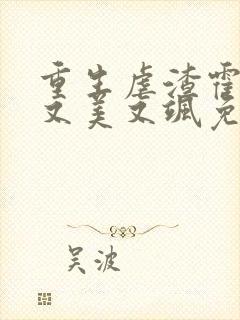 重生虐渣霍
又美又飒免
吴波